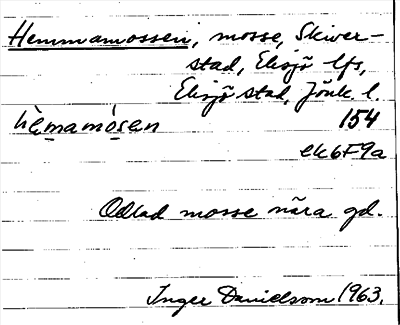 Hemmamossen, mosse, Skiver-
stad, Eksjö lfs,
Eksjö stad, Jönk. l.
hèmamòsen 154
ek6F9a
Odlad mosse nära gd.
Inger Danielsson 1963.